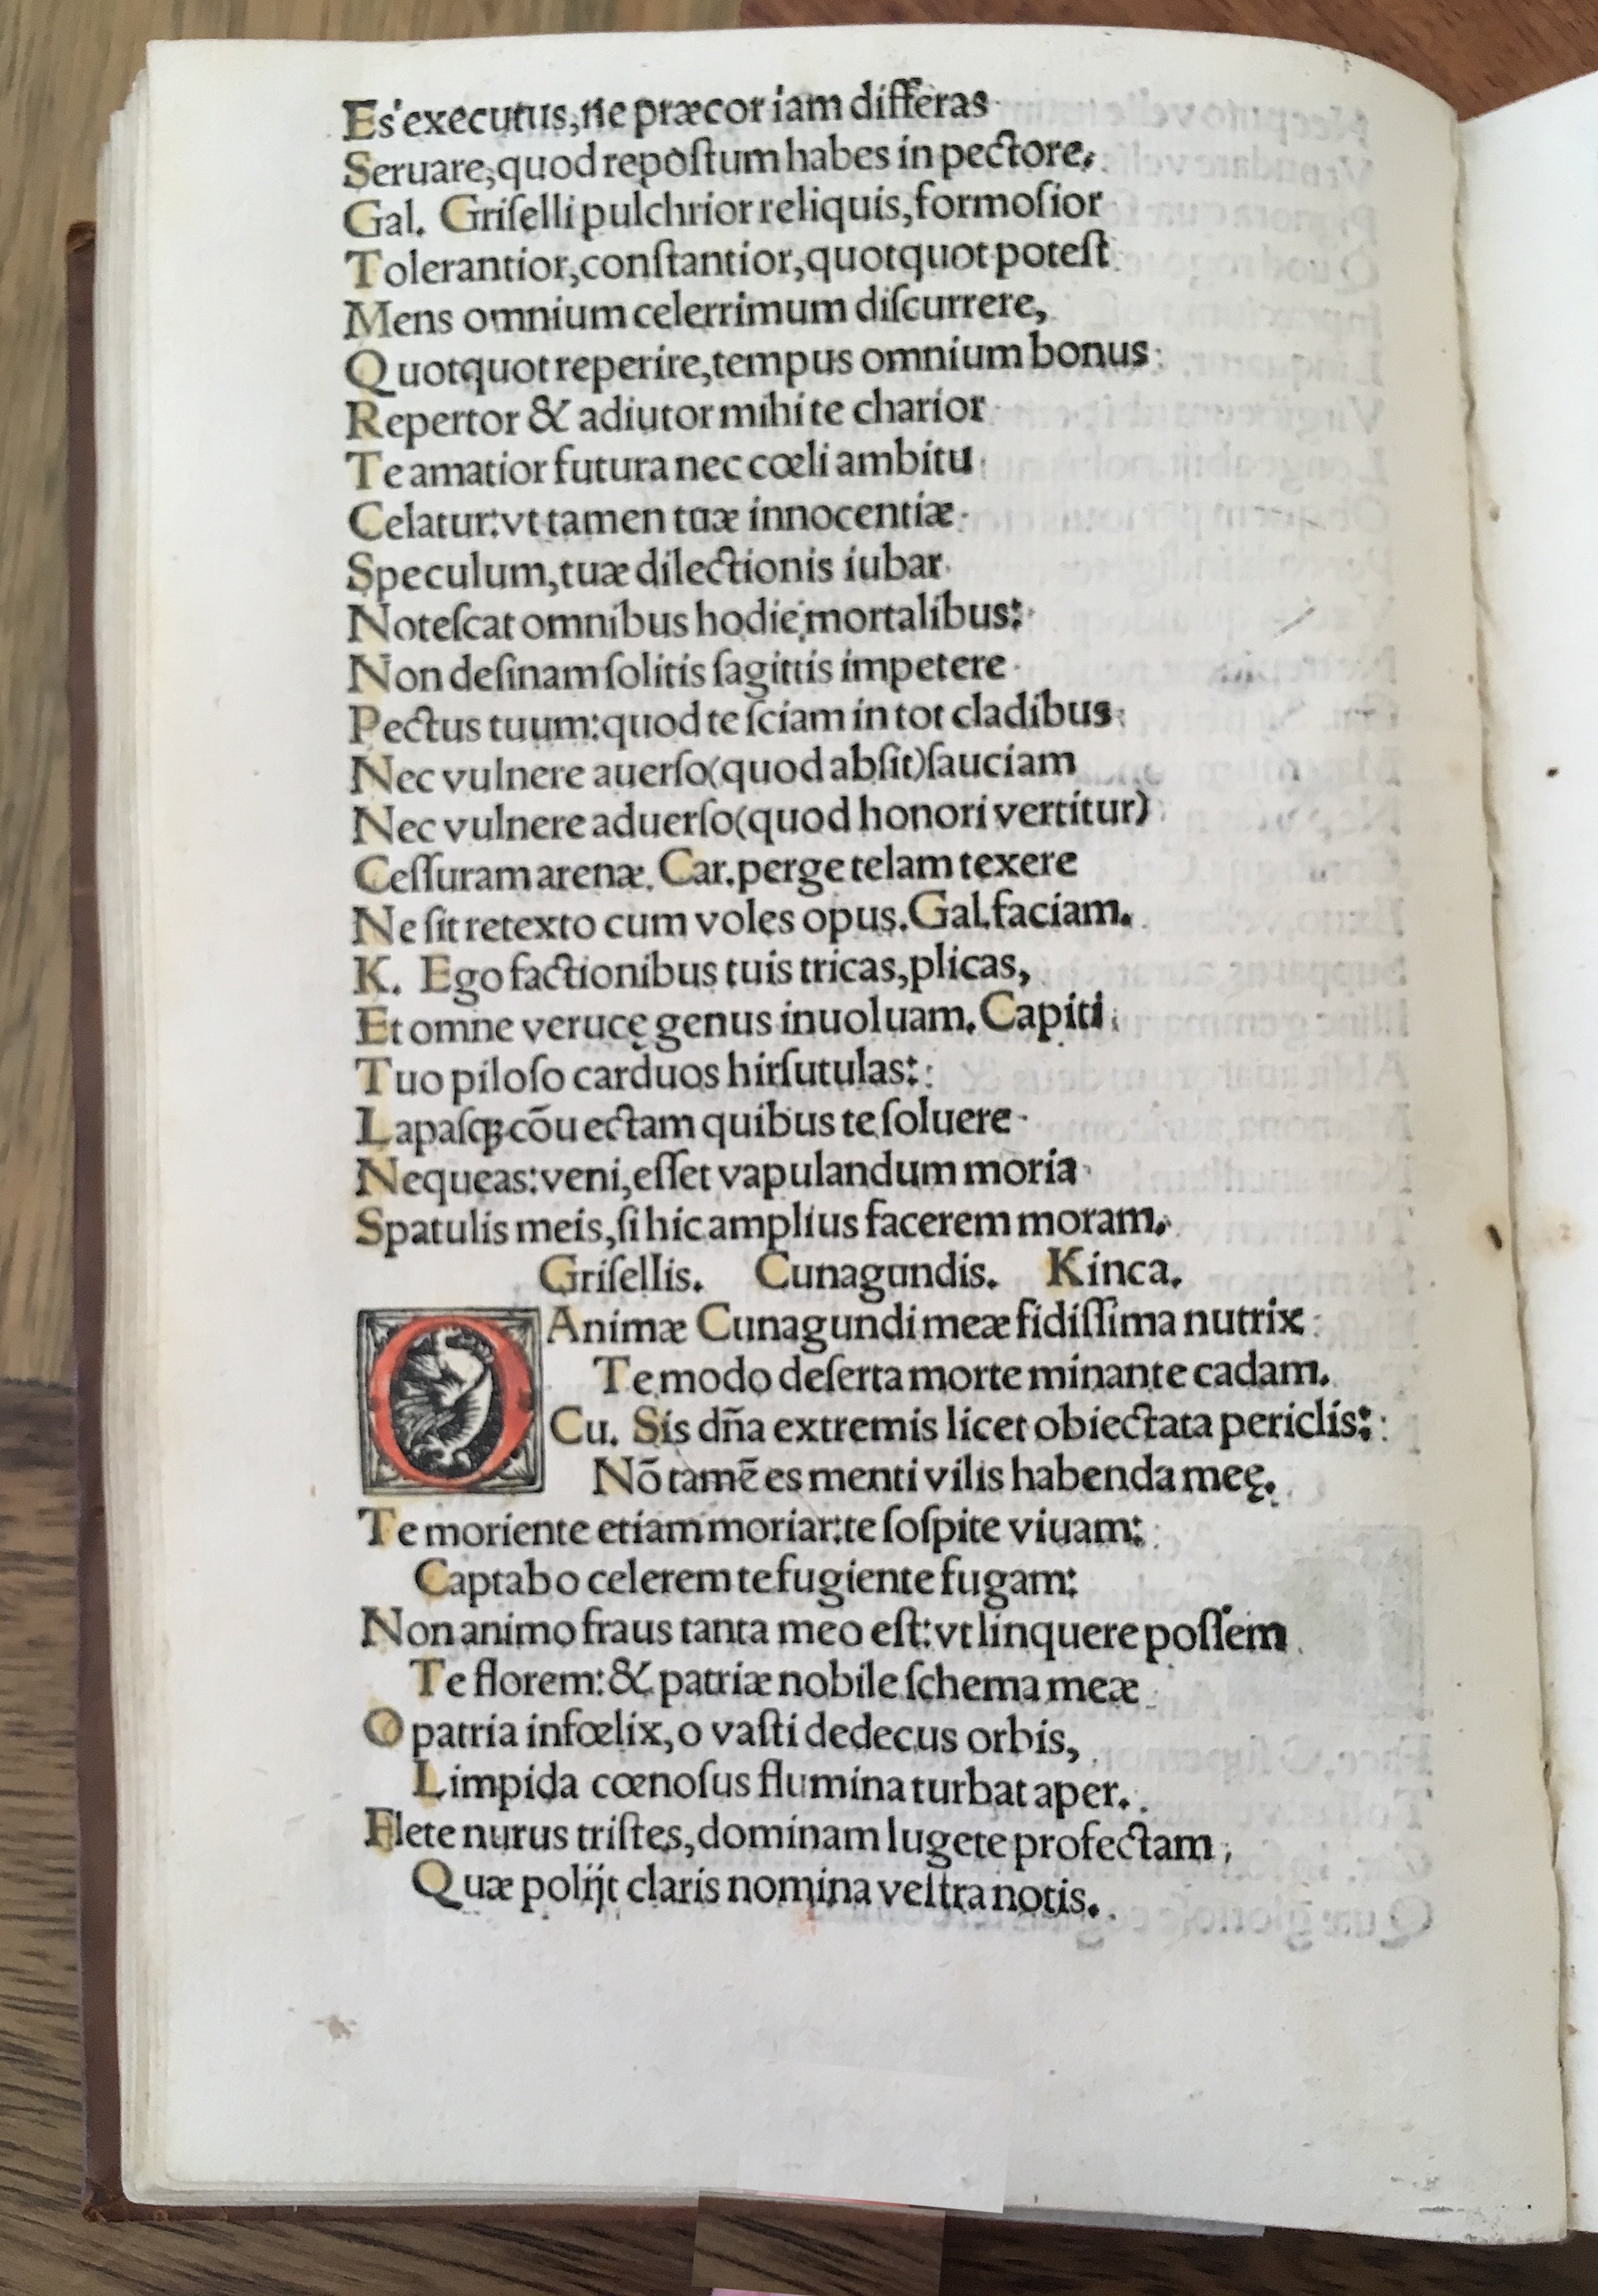 Es executus, ne præcor iam differas
Seruare, quod repoſtum habes in pectore.
Gal. Griſelli pulchrior reliquis, formoſior
Tolerantior, conſtantior, quotquot poteſt
Mens omnium celerrimum diſcurrere,
Quotquot reperire, tempus omnium bonus
Repertor & adiutor mihi te charior
Te amatior futura nec cœli ambitu
Celatur: vt tamen tuæ innocentiæ
Speculum, tuæ dilectionis iubar
Noteſcat omnibus hodie mortalibus:
Non deſinam ſolitis ſagittis impetere
Pectus tuum: quod te ſciam in tot cladibus
Nec vulnere auerſo (quod abſit) ſauciam
Nec vulnere aduerſo (quod honori vertitur)
Ceſſuram arenæ. Car. perge telam texere
Ne ſit retexto cum voles opus. Gal. faciam.
K. Ego factionibus tuis tricas, plicas,
Et omne verucę genus inuoluam. Capiti
Tuo piloſo carduos hirſutulas:
Lapaſqꝫ cōuectam quibus te ſoluere
Nequeas: veni, eſſet vapulandum moria
Spatulis meis, ſi hic amplius facerem moram.
Griſellis. Cunagundis. Kinca.
O Animæ Cunagundi meæ fidiſſima nutrix
Te modo deſerta morte minante cadam.
Cu. Sis dña extremis licet obiectata periclis:
Nō tamē es menti vilis habenda meę.
Te moriente etiam moriar: te ſoſpite viuam:
Captabo celerem te fugiente fugam:
Non animo fraus tanta meo eſt: vt linquere poſſem
Te florem: & patriæ nobile ſchema meæ
O patria infœlix, o vaſti dedecus orbis,
Limpida cœnoſus flumina turbat aper.
Flete nurus triſtes, dominam lugete profectam,
Quæ polijt claris nomina veſtra notis.